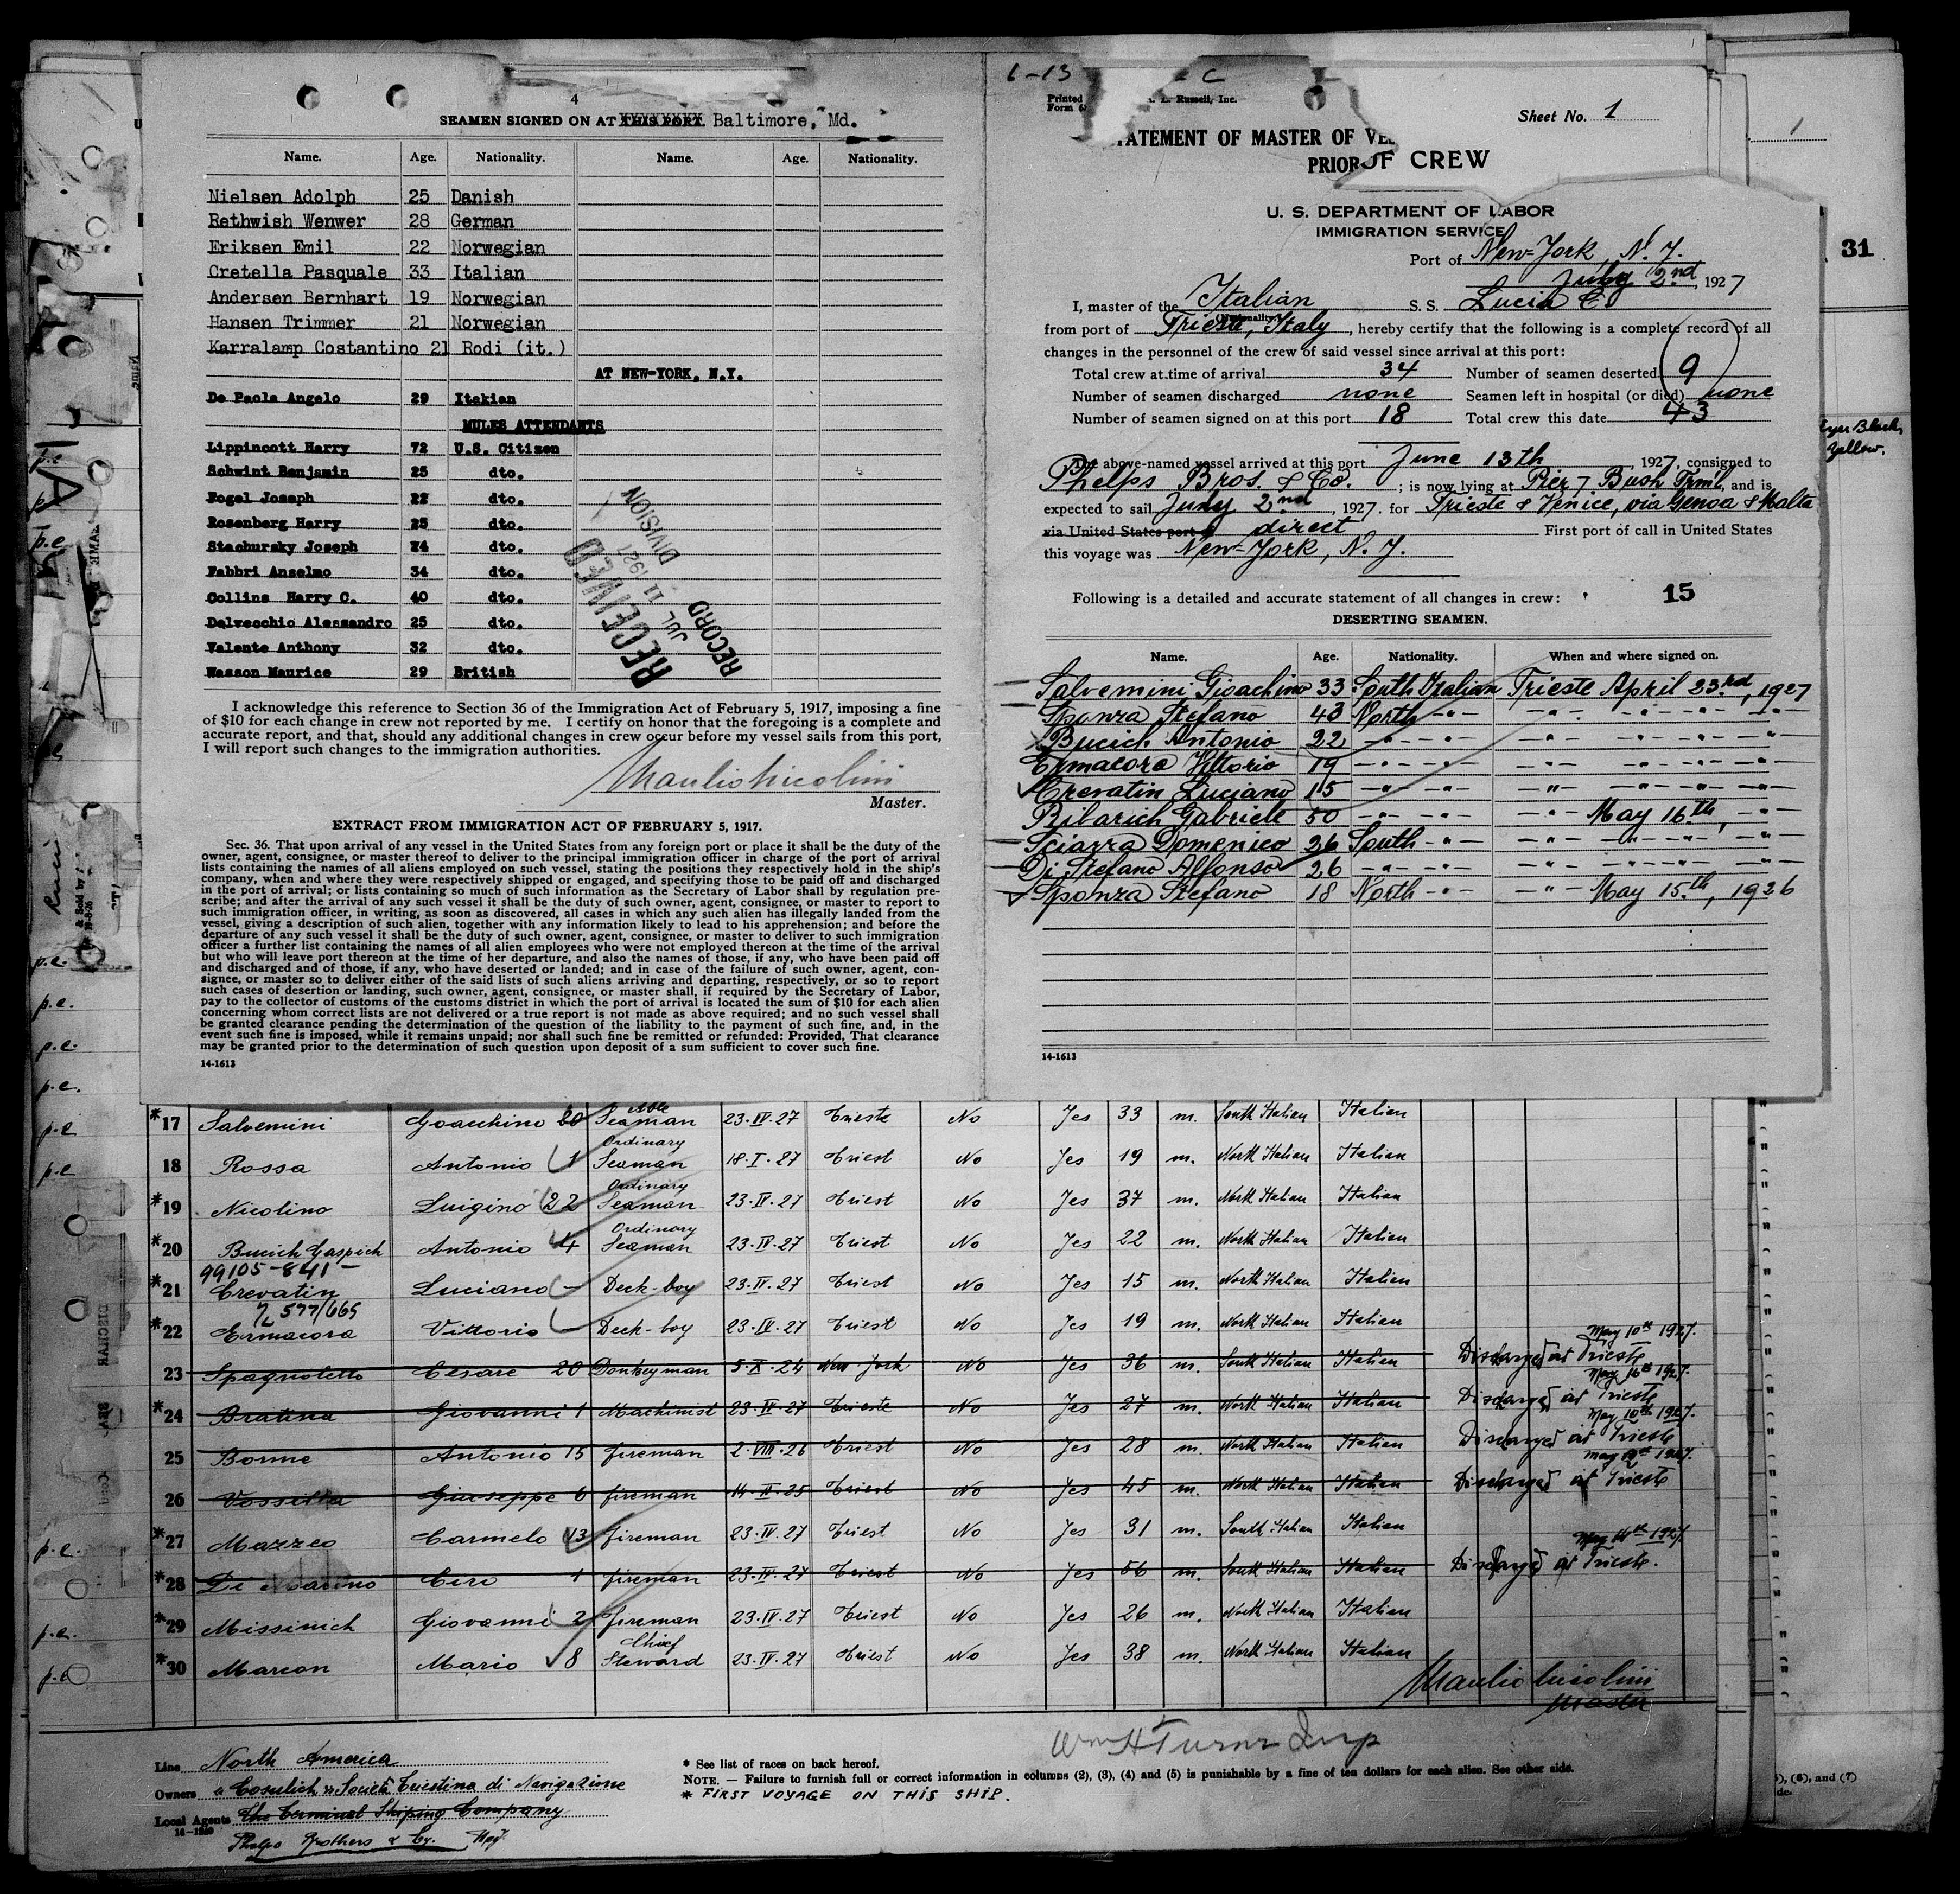 4
SEAMEN SIGNED ON AT THIS PORT. Baltimore, Md.
Name. Age. Nationality. Name. Age. Nationality.
Nielsen Adolph 25 Danish
Rethwish Wenwer 28 German
Eriksen Emil 22 Norwegian
Cretella Pasquale 33 Italian
Andersen Bernhart 19 Norwegian
Hansen Trimmer 21 Norwegian
Karralamp Costantino 21 Rodi (it.)
AT NEW-YORK, N.Y.
De Paola Angelo 29 Itakian
MULES ATTENDANTS
Lippincott Harry 72 U.S. Citizen
Schwint Benjamin 25 dto.
Fogel Joseph 22 dto.
Rosenberg Harry 25 dto.
Stachursky Joseph 24 dto.
Fabbri Anselmo 34 dto.
Collins Harry C. 40 dto.
Delvecchio Alessandro 25 dto.
Valente Anthony 32 dto.
Wasson Maurice 29 British
RECEIVED
JUL 11 1927
RECORD DIVISION
I acknowledge this reference to Section 36 of the Immigration Act of February 5, 1917, imposing a fine
of $10 for each change in crew not reported by me. I certify on honor that the foregoing is a complete and
accurate report, and that, should any additional changes in crew occur before my vessel sails from this port,
I will report such changes to the immigration authorities.
Manlio Nicolini
Master.
EXTRACT FROM IMMIGRATION ACT OF FEBRUARY 5, 1917.
Sec. 36. That upon arrival of any vessel in the United States from any foreign port or place it shall be the duty of the
owner, agent, consignee, or master thereof to deliver to the principal immigration officer in charge of the port of arrival
lists containing the names of all aliens employed on such vessel, stating the positions they respectively hold in the ship's
company, when and where they were respectively shipped or engaged, and specifying those to be paid off and discharged
in the port of arrival; or lists containing so much of such information as the Secretary of Labor shall by regulation pre-
scribe; and after the arrival of any such vessel it shall be the duty of such owner, agent, consignee, or master to report to
such immigration officer, in writing, as soon as discovered, all cases in which any such alien has illegally landed from the
vessel, giving a description of such alien, together with any information likely to lead to his apprehension; and before the
departure of any such vessel it shall be the duty of such owner, agent, consignee, or master to deliver to such immigration
officer a further list containing the names of all alien employees who were not employed thereon at the time of the arrival
but who will leave port thereon at the time of her departure, and also the names of those, if any, who have been paid off
and discharged and of those, if any, who have deserted or landed; and in case of the failure of such owner, agent, con-
signee, or master so to deliver either of the said lists of such aliens arriving and departing, respectively, or so to report
such cases of desertion or landing, such owner, agent, consignee, or master shall, if required by the Secretary of Labor,
pay to the collector of customs of the customs district in which the port of arrival is located the sum of $10 for each alien
concerning whom correct lists are not delivered or a true report is not made as above required; and no such vessel shall
be granted clearance pending the determination of the question of the liability to the payment of such fine, and, in the
event such fine is imposed, while it remains unpaid; nor shall such fine be remitted or refunded: Provided, That clearance
may be granted prior to the determination of such question upon deposit of a sum sufficient to cover such fine.
14-1613
Printed Russell, Inc.
Form
Sheet No. 1
TATEMENT OF MASTER OF VE
PRIOR OF CREW
U. S. DEPARTMENT OF LABOR
IMMIGRATION SERVICE
Port of New-York, N.Y.
July 2nd, 1927
I, master of the Italian S. S. Lucia C.
(Nationality.)
from port of Trieste, Italy, hereby certify that the following is a complete record of all
changes in the personnel of the crew of said vessel since arrival at this port:
Total crew at time of arrival 34 Number of seamen deserted 9
Number of seamen discharged none Seamen left in hospital (or died) none
Number of seamen signed on at this port 18 Total crew this date 43
The above-named vessel arrived at this port June 13th, 1927, consigned to
Phelps Bros. & Co.; is now lying at Pier 7 Bush Trml, and is
expected to sail July 2nd, 1927. for Trieste & Venice, via Genoa & Malta
via United States port direct First port of call in United States
this voyage was New-York, N.Y.
Following is a detailed and accurate statement of all changes in crew: 15
DESERTING SEAMEN.
Name. Age. Nationality. When and where signed on.
Salvemini Gioachino 33 South Italian Trieste April 23rd, 1927
Sponza Stefano 43 North -"- -"- -"- -"- -"-
Bucich Antonio 22 -"- -"- -"- -"- -"- -"-
Ermacora Vittorio 19 -"- -"- -"- -"- -"- -"-
Crevatin Luciano 15 -"- -"- -"- -"- -"- -"-
Bibarich Gabriele 50 -"- -"- -"- May 16th, -"-
Sciarra Domenico 26 South -"- -"- -"- -"- -"-
Di Stefano Alfonso 26 -"- -"- -"- -"- -"- -"-
Sponza Stefano 18 North -"- -"- May 15th, 1926
14-1613
31
Eyes Black,
Yellow.
*17 Salvemini Goacchino 20 Able Seaman 23.IV.27 Trieste No Yes 33 m. South Italian Italian
18 Rossa Antonio 1 Ordinary Seaman 18.I.27 Triest No Yes 19 m. North Italian Italian
*19 Nicolino Luigino 22 Ordinary Seaman 23.IV.27 Triest No Yes 37 m. North Italian Italian
*20 Bucich Gaspich Antonio 4 Ordinary Seaman 23.IV.27 Triest No Yes 22 m. North Italian Italian
99105-841
*21 Crevatin Luciano - Deck-boy 23.IV.27 Triest No Yes 15 m. North Italian Italian
577/665
*22 Ermacora Vittorio Deck-boy 23.IV.27 Triest No Yes 19 m. North Italian Italian
23 Spagnoletto Cesare 20 Donkeyman 5.X.24 New York No Yes 36 m. South Italian Italian Discharged at Trieste May 10th 1927.
*24 Bratina Giovanni 1 Machinist 23.IV.27 Trieste No Yes 27 m. North Italian Italian Discharged at Trieste May 16th 1927.
25 Bonne Antonio 15 fireman 2.VIII.26 Triest No Yes 28 m. North Italian Italian Discharged at Trieste May 10th 1927.
26 Vossilla Giuseppe 6 fireman 14.IV.25 Triest No Yes 45 m. North Italian Italian Discharged at Trieste
*27 Mazzeo Carmelo 13 fireman 23.IV.27 Triest No Yes 31 m. South Italian Italian
*28 Di Ciro 1 fireman 23.IV.27 Triest No Yes 56 m. South Italian Italian Discharged at Trieste.
*29 Missinich Giovanni 2 fireman 23.IV.27 Triest No Yes 26 m. North Italian Italian
*30 Marcon Mario 8 Chief Steward 23.IV.27 Triest No Yes 38 m. North Italian Italian
Manlio Nicolini
Master
Wm H Turner Insp
Line North America
Owners "Cosulich" Società Triestina di Navigazione
Local Agents The Terminal Shiping Company
14-1240
Phelps Brothers & Cy.
* See list of races on back hereof.
NOTE. — Failure to furnish full or correct information in columns (2), (3), (4) and (5) is punishable by a fine of ten dollars for each alien. See other side.
* FIRST VOYAGE ON THIS SHIP.
(6), and (7)